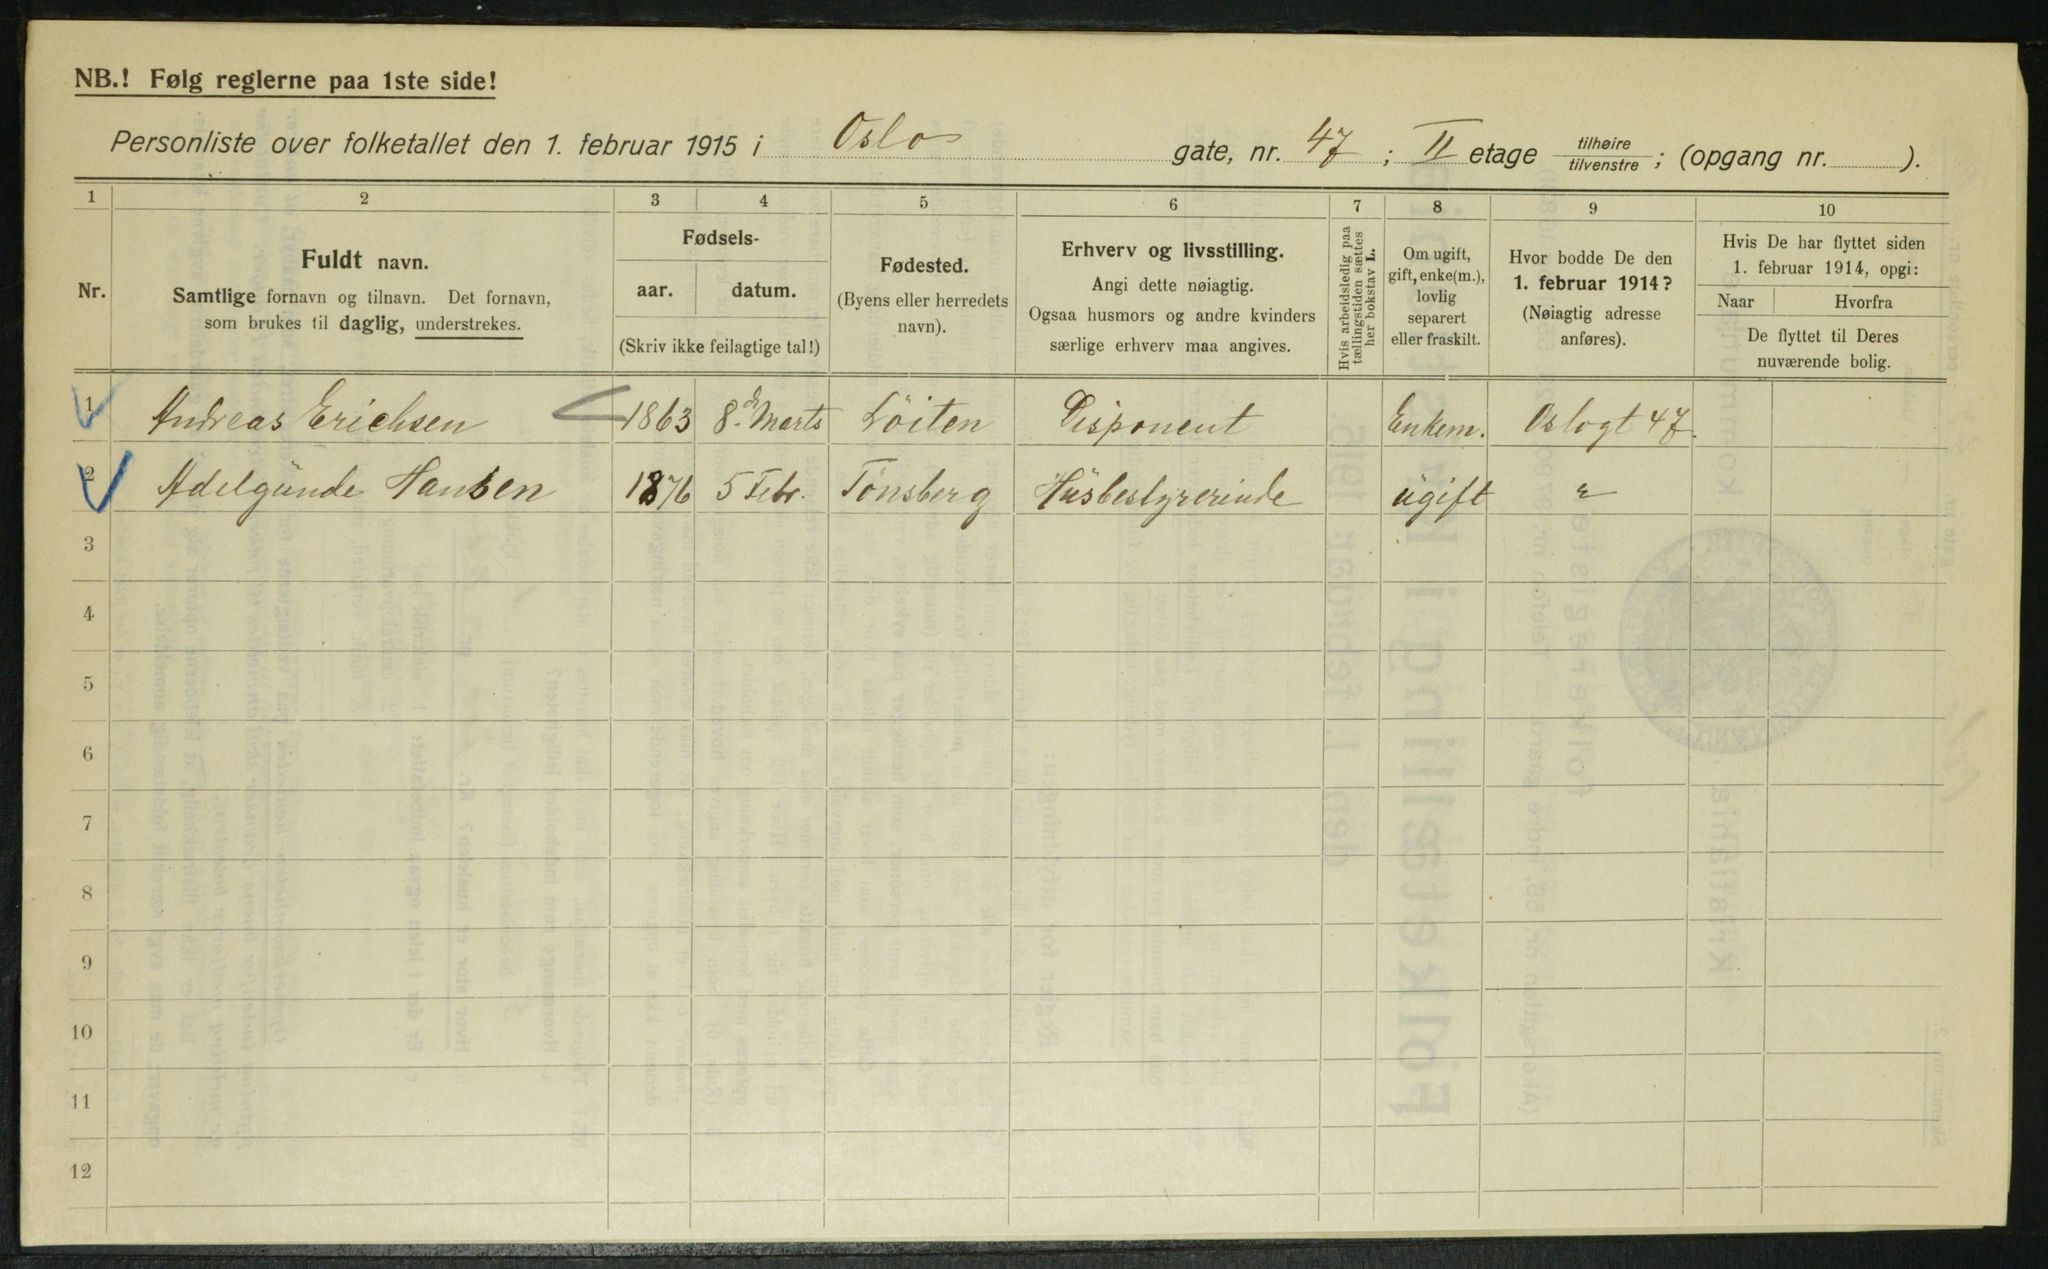 NB.! Følg reglerne paa 1ste side!
Personliste over folketallet den 1. februar 1915 i Oslo gate, nr. 47; II etage tilhøire tilvenstre; (opgang nr. ).
1 2 3 4 5 6 7 8 9 10
Nr.
Fuldt navn.
Samtlige fornavn og tilnavn. Det fornavn,
som brukes til daglig, understrekes.
Fødsels-
aar. datum.
(Skriv ikke feilagtige tal!)
Fødested.
(Byens eller herredets
navn).
Erhverv og livsstilling.
Angi dette nøiagtig.
Ogsaa husmors og andre kvinders
særlige erhverv maa angives.
Hvis arbeidsledig paa
tællingstiden sættes
her bokstav L.
Om ugift,
gift, enke(m.),
lovlig
separert
eller fraskilt.
Hvor bodde De den
1. februar 1914?
(Nøiagtig adresse
anføres).
Hvis De har flyttet siden
1. februar 1914, opgi:
Naar Hvorfra
De flyttet til Deres
nuværende bolig.
1 Andreas Erichsen 1863 8de Marts Löiten Disponent Enkem. Oslogt 47.
2 Adelgunde Hansen 1876 5 Febr. Tönsberg Husbestyrerinde ugift "
3
4
5
6
7
8
9
10
11
12